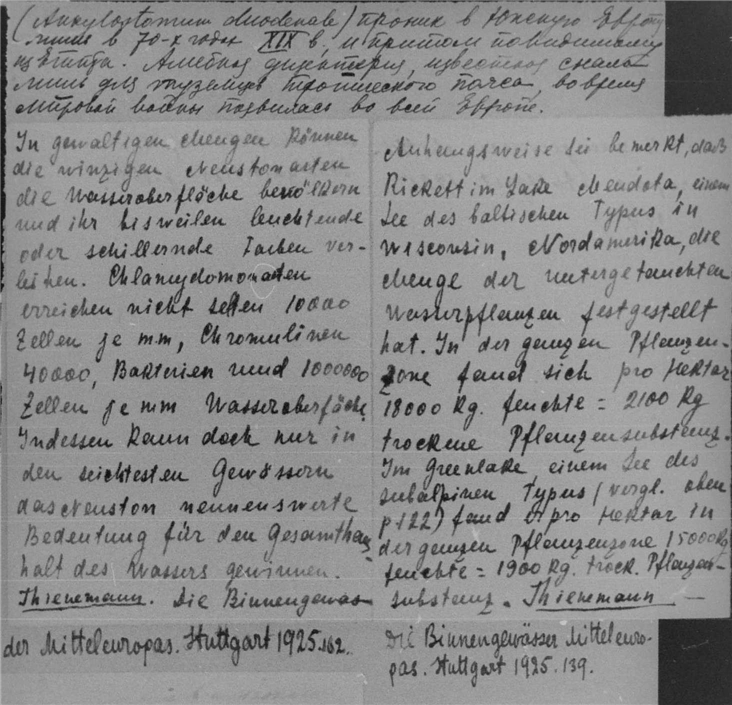 (Ankylostomum duodenale) проник в Южную Европу
лишь в 70-х годах XIX в, и притом повидимому
из Египта. Амебная дизентерия, известная сначала
лишь для туземцев тропического пояса, во время
Мировой войны появилась во всей Европе.
In gewaltigen Mengen können
die winzigen Neustonarten
die Wasseroberfläche bevölkern
und ihr bisweilen leuchtende
oder schillernde Farben ver-
leihen. Chlamydomonaden
erreichen nicht selten 10000
Zellen je mm, Chromulinen
40000, Bakterien rund 1000000
Zellen je mm Wasseroberfäche
Indessen kann doch nur in
den seichtesten Gewässern
das Neuston nennenswerte
Bedeutung für den Gesamthaus
halt des Wassers gewinnen.
Thienemann. Die Binnengewäs
der Mitteleuropas. Stuttgart 1925.162.
Anhangsweise sei bemerkt, daß
Rickett im Lake Mendota, einem
See des baltischen Typus in
Wisconsin, Nordamerika, die
Menge der untergetauchten
Wasserpflanzen festgestellt
hat. In der ganzen Pflanzen-
zone fand sich pro Hektar
18000 Kg. feuchte = 2100 Kg
trockene Pflanzensubstanz.
Im Greenlake einem See des
subalpinen Typus (vergl. oben
p 122) fand er pro Hektar in
der ganzen Pflanzenzone 15000 Kg
feuchte = 1900 Kg. trock. Pflanzen-
substanz. Thienemann —
Die Binnengewässer Mitteleuro-
pas. Stuttgart 1925. 139.